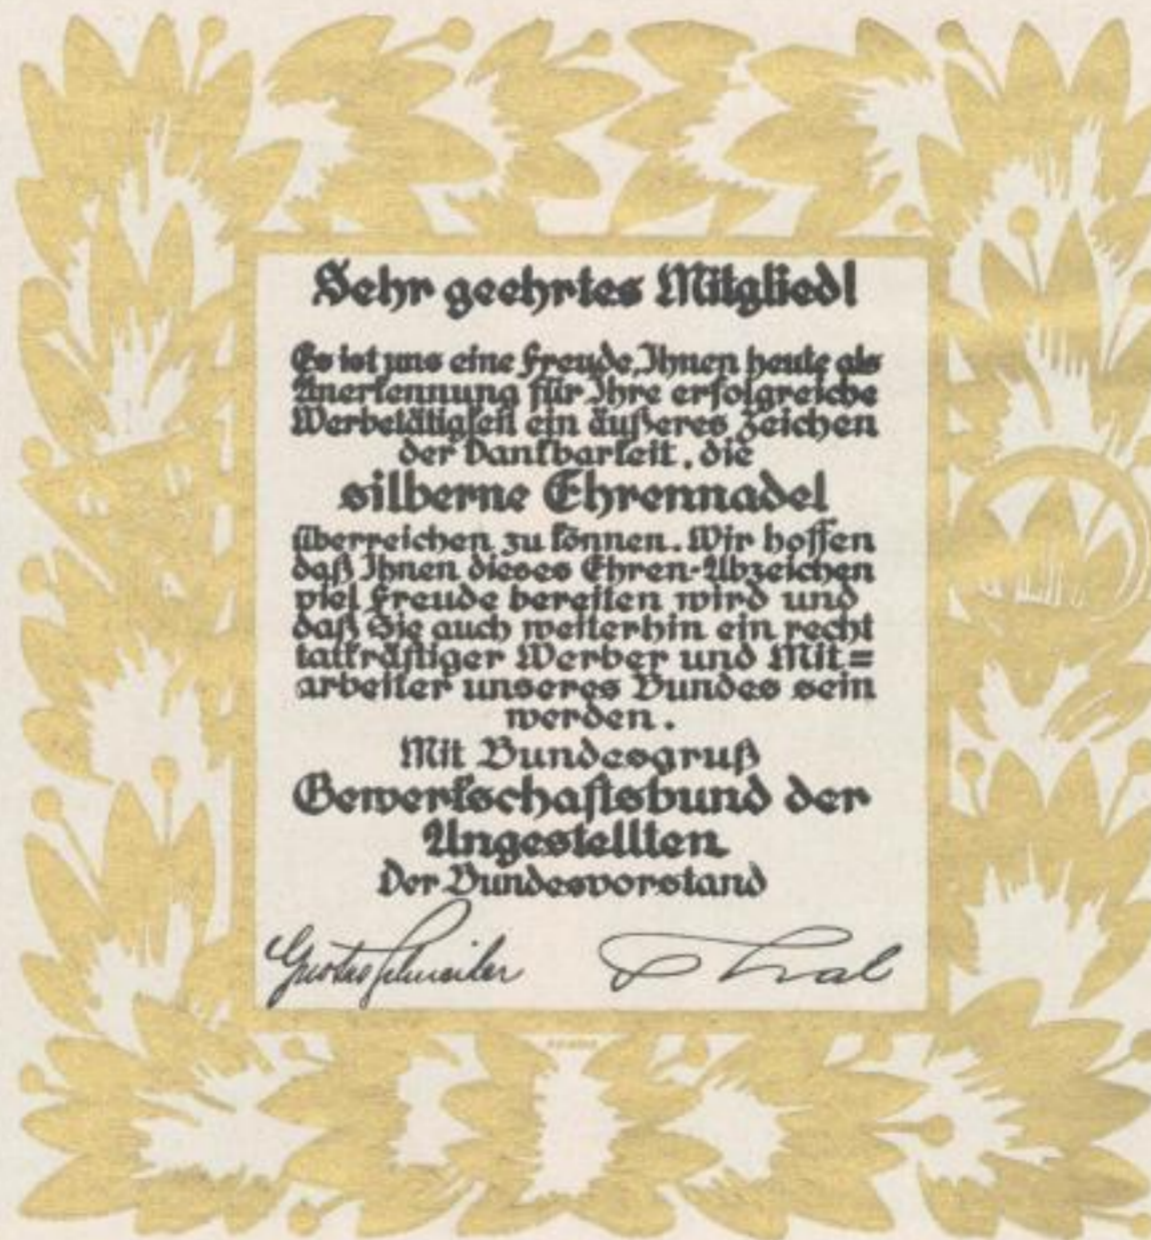 Sehr geehrtes Mitglied!
Es ist uns eine Freude, Ihnen heute als
Anerkennung für Ihre erfolgreiche
Werbetätigkeit ein äußeres Zeichen
der Dankbarkeit, die
silberne Ehrennadel
überreichen zu können. Wir hoffen
daß Ihnen dieses Ehren-Abzeichen
viel Freude bereiten wird und
daß Sie auch weiterhin ein recht
tatkräftiger Werber und Mit=
arbeiter unseres Bundes sein
werden.
Mit Bundesgruß
Gewerkschaftsbund der
Angestellten
Der Bundesvorstand
Gustav Schneider